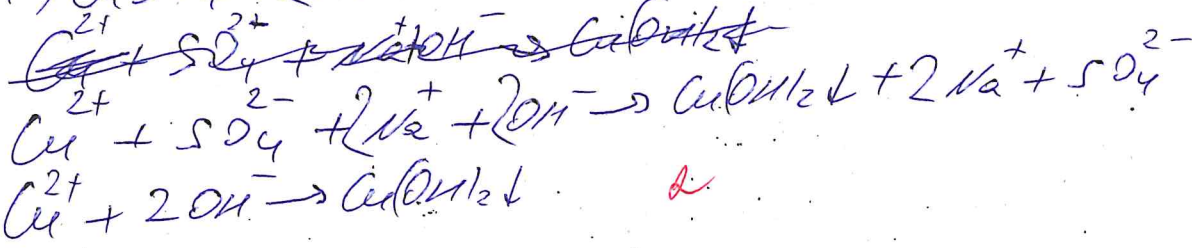 Cu²⁺ + SO₄²⁺ + Na⁺ + OH⁻ → Cu(OH)₂↓
Cu²⁺ + SO₄²⁻ + 2Na⁺ + 2OH⁻ → Cu(OH)₂↓ + 2Na⁺ + SO₄²⁻
Cu²⁺ + 2OH⁻ → Cu(OH)₂↓ 2.